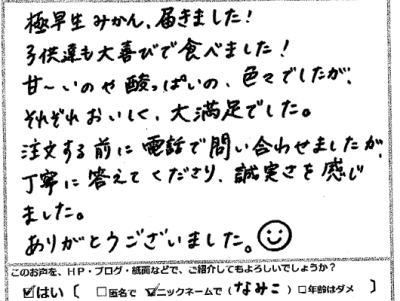 極早生みかん、届きました!
子供達も大喜びで食べました!
甘〜いのや酸っぱいの、色々でしたが、
それぞれおいしく、大満足でした。
注文する前に電話で問い合わせましたが、
丁寧に答えてくださり、誠実さを感じ
ました。
ありがとうございました。
このお声を、HP・ブログ・紙面などで、ご紹介してもよろしいでしょうか?
☑はい〔 □匿名で ☑ニックネームで(なみこ)□年齢はダメ 〕